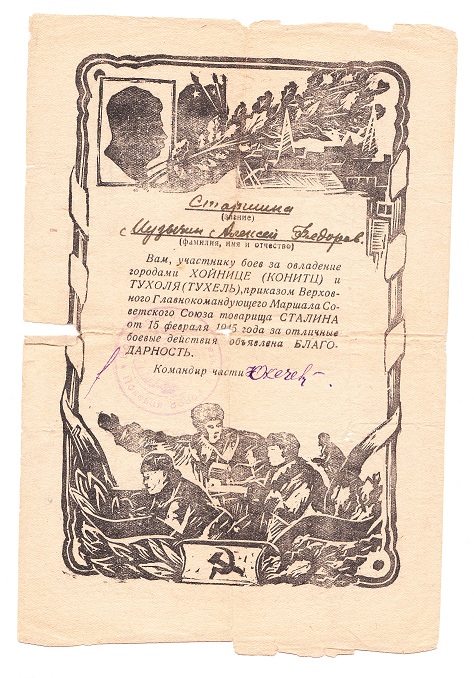 Старшина
(звание)
Алексей Федоров.
(фамилия, имя и отчество)
Вам, участнику боев за овладение
городами ХОЙНИЦЕ (КОНИТЦ) и
ТУХОЛЯ (ТУХЕЛЬ), приказом Верхов-
ного Главнокомандующего Маршала Со-
ветского Союза товарища СТАЛИНА
от 15 февраля 1945 года за отличные
боевые действия объявлена БЛАГО-
ДАРНОСТЬ.
Командир части